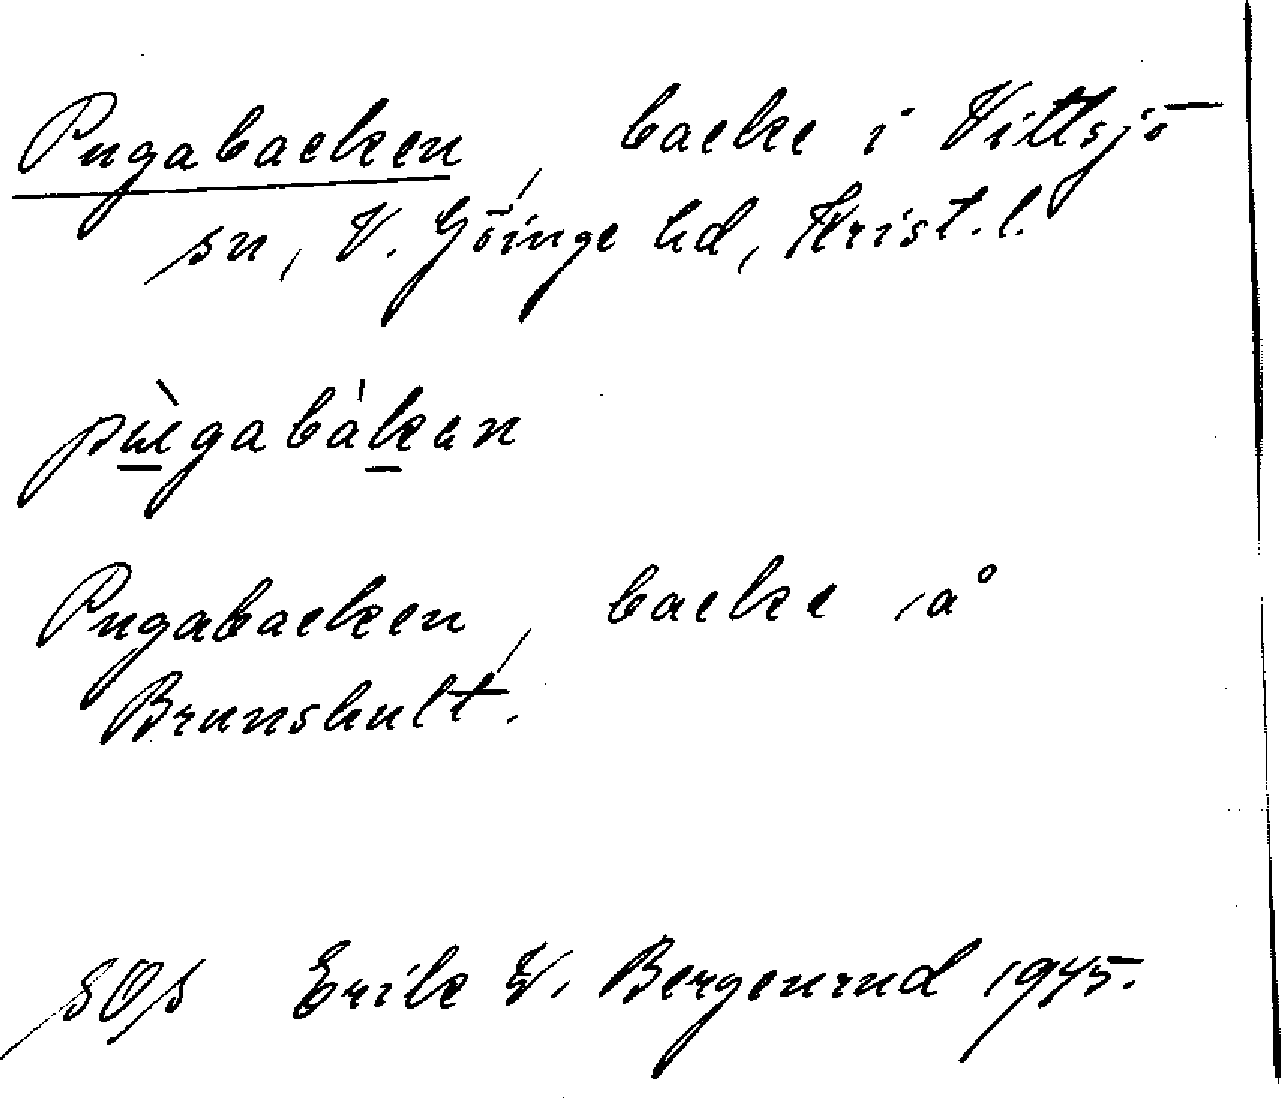 Pugabacken, backe i Vittsjö
sn, V. Göinge hd, Krist. l.
pùgabákan
Pugabacken, backe å
Brunshult.
SOS Erik W. Bergenrud 1945.